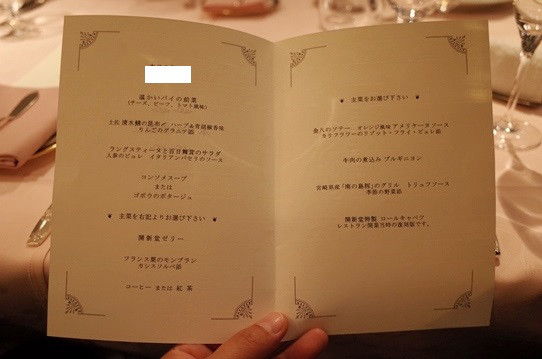 温かいパイの前菜
(チーズ、ビーフ、トマト風味)
土佐 清水鯖の昆布〆 ハーブ&青胡椒香味
りんごのグラニテ添
ラングスティーヌと舞茸のサラダ
人参のピュレ イタリアンパセリのソース
コンソメスープ
または
ゴボウのポタージュ
主菜を右記よりお選び下さい
開新堂ゼリー
フランス栗のモンブラン
カシスソルベ添
コーヒー または 紅茶
主菜をお選び下さい
金八のソテー オレンジ風味 アメリケーヌソース
カリフラワーのリゾット・フライ・ピュレ添
牛肉の煮込み ブルギニョン
宮崎県産「南の島豚」のグリル トリュフソース
季節の野菜添
開新堂特製 ロールキャベツ
レストラン開業当時の復刻版です。